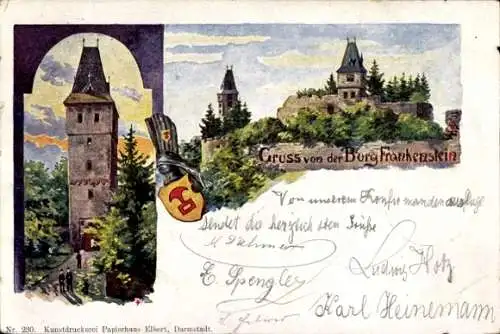 Gruss von der Burg Frankenstein
Von unserem Konfirmandenausfluge
sendet die herzlichsten Grüße
E. Spengler
Ludwig Hotz
Karl Heinemann
Nr. 230. Kunstdruckerei Papierhaus Elbert, Darmstadt.